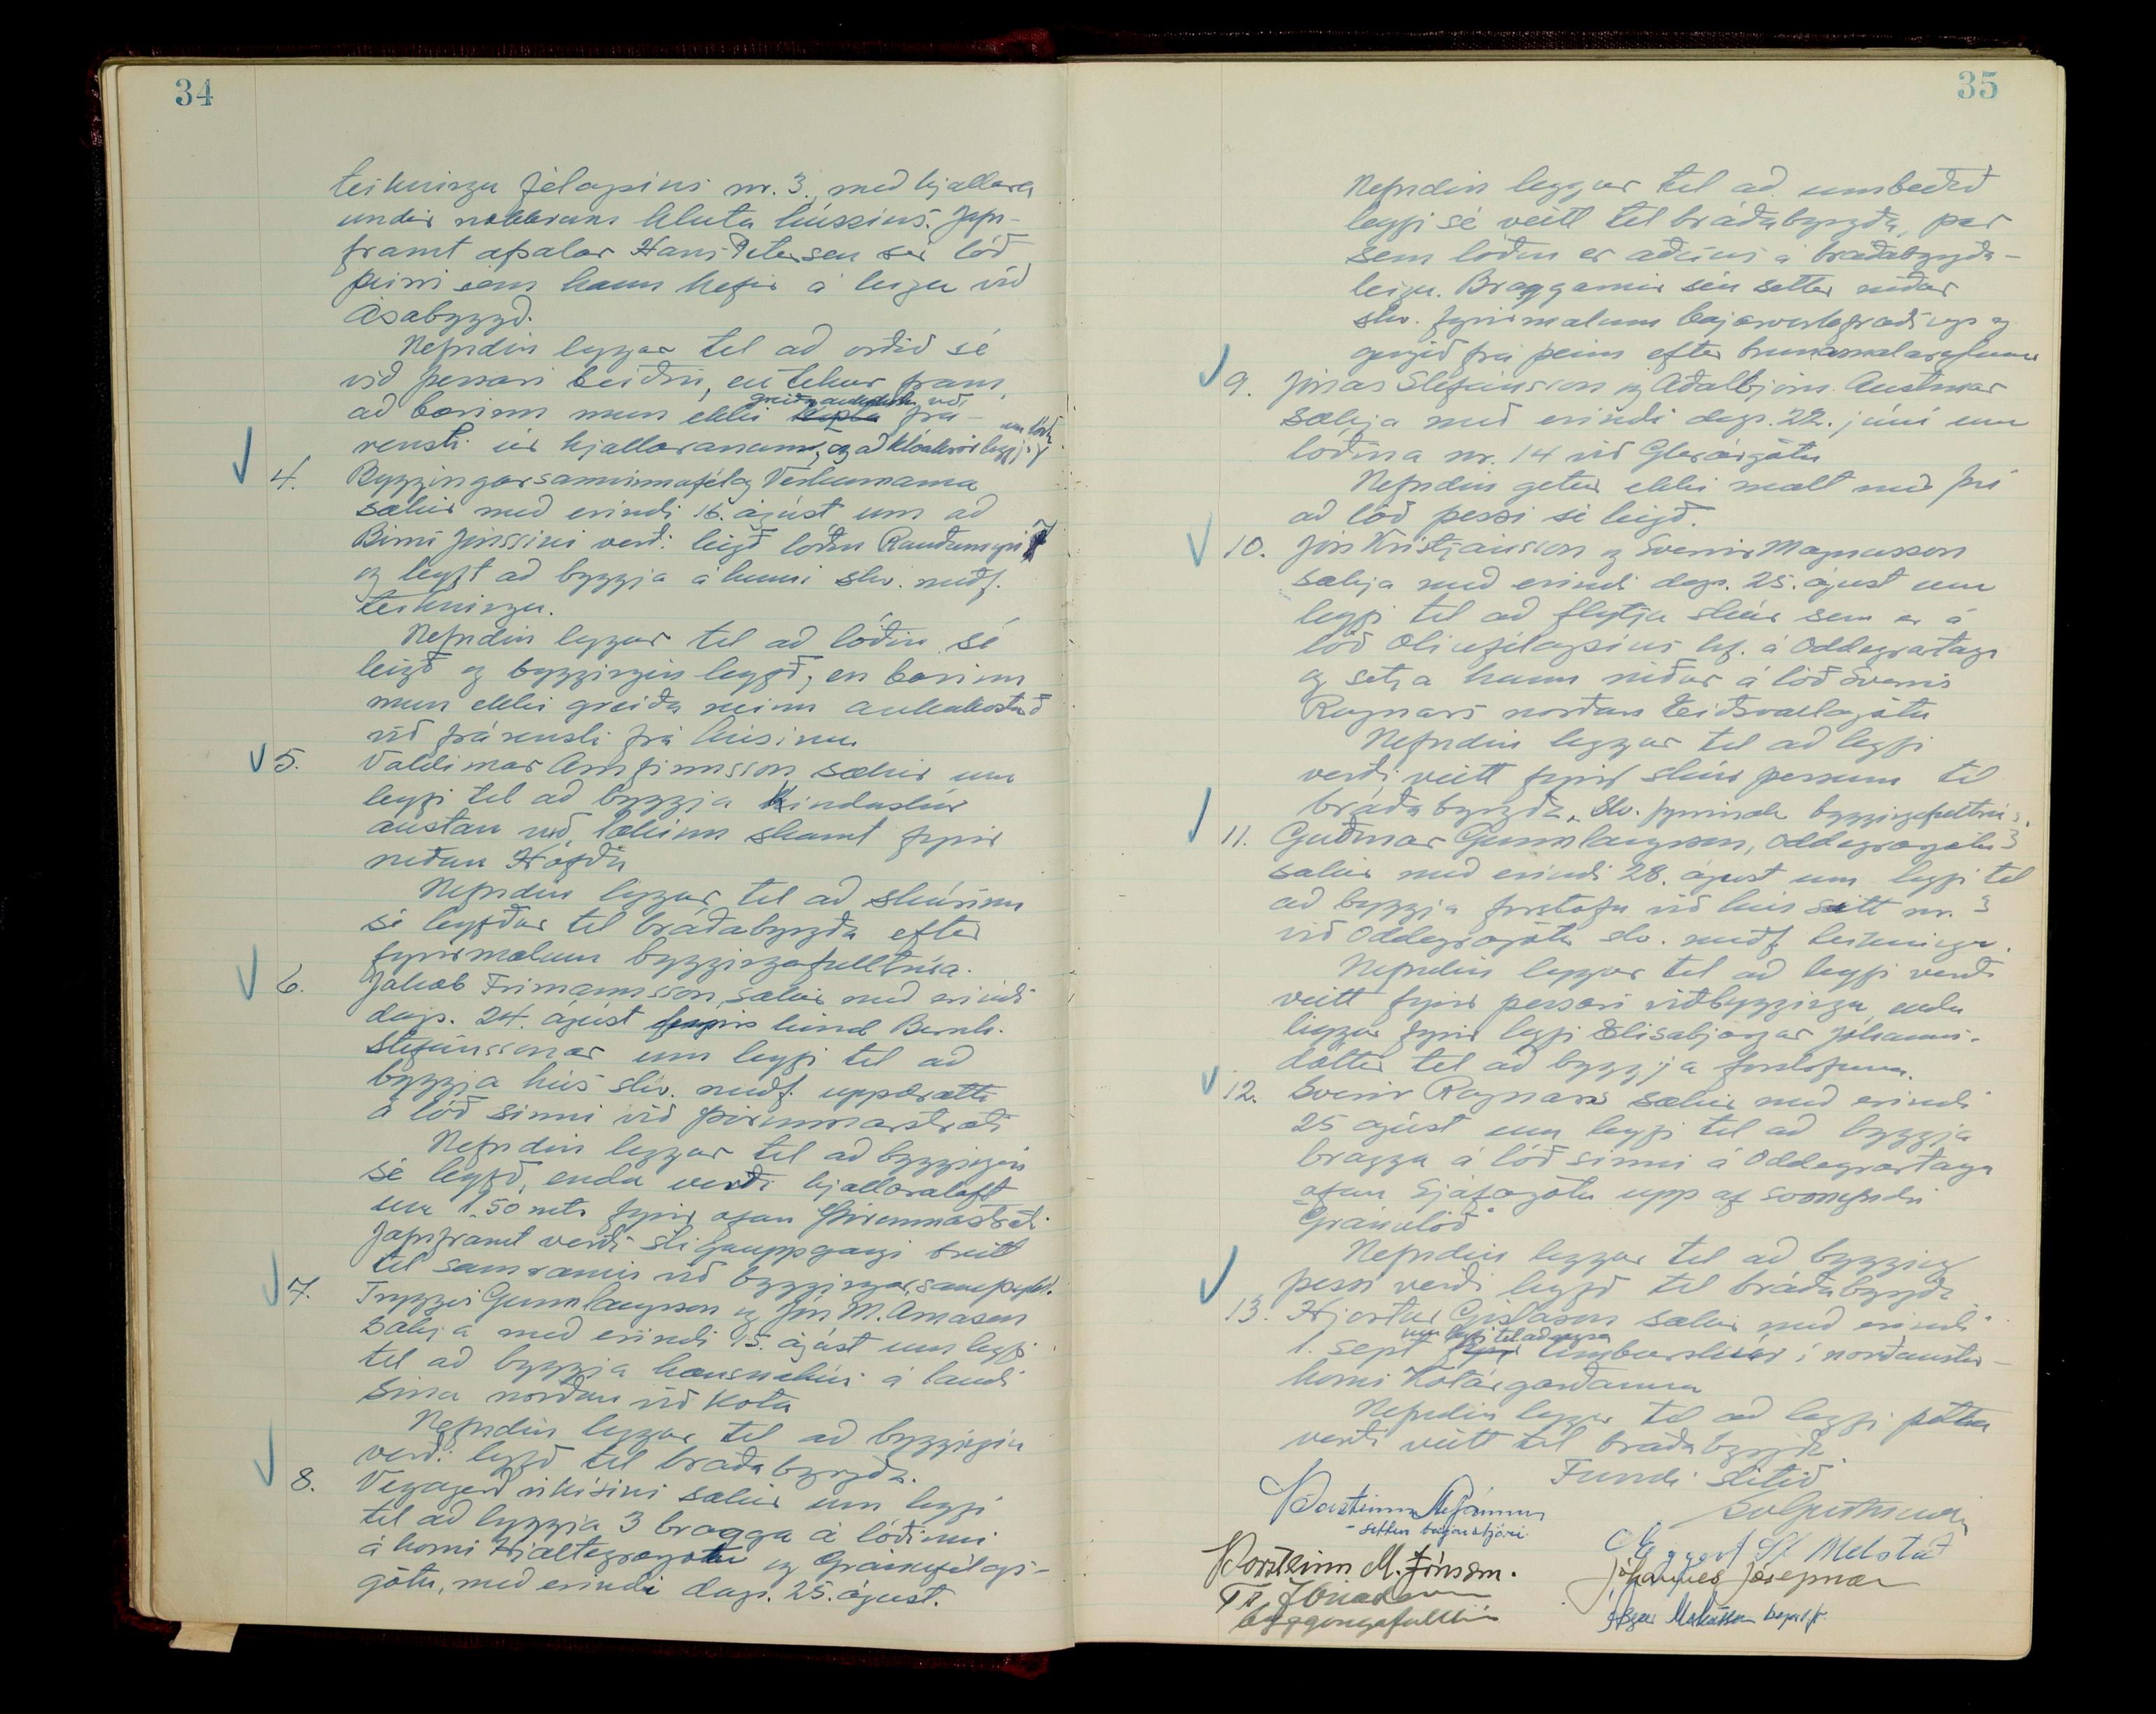 34
teikningu félagsins nr. 3, með kjallara
undir nokkrum hluta hússins. Jafn-
framt afsalar Hans Petersen sér lóð
þeirri sem hann hefir á leigu við
Ásabyggð.
Nefndin leggur til að orðið sé
við þessari beiðni, en tekur fram
greiða aukakostn. við
að bærinn mun ekki frá-
um lóð
rensli úr kjallaranum, og að klóakrör liggi
4. Byggingarsamvinnufélag Verkamanna
sækir með erindi 16. ágúst um að
Birni Jónssyni verði leigð lóðin Rauðamýri 7
og leyft að byggja á henni skv. meðf.
teikningu.
Nefndin leggur til að lóðin sé
leigð og byggingin leyfð, en bærinn
mun ekki greiða neinn aukakostnað
við frárensli frá húsinu
5. Valdimar Arnfinnsson sækir um
leyfi til að byggja kindaskúr
austan við lækinn skamt fyrir
neðan Höfða
Nefndin leggur til að skúrinn
sé leyfður til bráðabyrgða eftir
fyrirmælum byggingafulltrúa.
6. Jakob Frimannsson, sækir með erindi
dags. 24. ágúst fyrir hönd Bernh.
Stefánssonar um leyfi til að
byggja hús skv. meðf. uppdrætti
á lóð sinni við Þórunnarstræti
Nefndin leggur til að byggingin
sé leyfð, enda verði kjallaraloft
um 1.50 mtr. fyrir ofan Þórunnarstræti.
Jafnframt verði stigauppgangi breitt
til samræmis við byggingarsamþykt.
7. Tryggvi Gunnlaugsson og Jón M. Árnason
sækja með erindi 15. ágúst um leyfi
til að byggja hænsnahús á landi
sínu norðan við Kota
Nefndin leggur til að byggingin
verði leyfð til bráðabyrgða.
8. Vegagerð ríkisins sækir um leyfi
til að byggja 3 bragga á lóðinni
á horni Hjalteyrargötu og Gránufélags-
götu, með erindi dags. 25. ágúst.
35
Nefndin leggur til að umbeðið
leyfi sé veitt til bráðabyrgða, þar
sem lóðin er aðeins á bráðabyrgða-
leigu. Braggarnir séu settir niður
skv. fyrirmælum bæjarverkfræðings og
gengið frá þeim eftir brunamálareglum
9. Jónas Stefánsson og Aðalbjörn Austmar
sækja með erindi dags. 22. júní um
lóðina nr. 14 við Glerárgötu
Nefndin getur ekki mælt með því
að lóð þessi sé leigð.
10. Jón Kristjánsson og Sverrir Magnússon
sækja með erindi dags. 25. ágúst um
leyfi til að flytja skúr sem er á
lóð Olíufélagsins hf. á Oddeyrartanga
og setja hann niður á lóð Sverris
Ragnars norðan Eiðsvallagötu
Nefndin leggur til að leyfi
verði veitt fyrir skúr þessum til
bráðabyrgða, skv. fyrirmæl. byggingafulltrúa.
11. Guðmar Gunnlaugsson, Oddeyrargötu 3
sækir með erindi 28. ágúst um leyfi til
að byggja forstofu við hús sitt nr. 3
við Oddeyrargötu skv. meðf. teikningu.
Nefndin leggur til að leyfi verði
veitt fyrir þessari viðbyggingu, enda
liggur fyrir leyfi Elisabjargar Jóhanns-
dóttir til að byggja forstofuna.
12. Sverrir Ragnars sækir með erindi
25 ágúst um leyfi til að byggja
bragga á lóð sinni á Oddeyrartanga
ofan Sjáfargötu upp af svonefndri
Gránulóð
Nefndin leggur til að bygging
þessi verði leyfð til bráðabyrgða
13. Hjörtur Gíslason sækir með erindi
um leyfi til að reysa
1. sept timburskúr í norðaustur-
horni Kotárgerðanna
Nefndin leggur til að leyfi þetta
verði veitt til bráðabyrgða
Fundi slitið
Þorsteinn Stefánsson
settur bæjarstjóri
Þorsteinn M. Jónsson.
Tr. Jónatansson
byggingafulltrúi
Eggert St. Melstað
Jóhannes Jósepsson
Ásgeir Markússon bæjarverkfr.